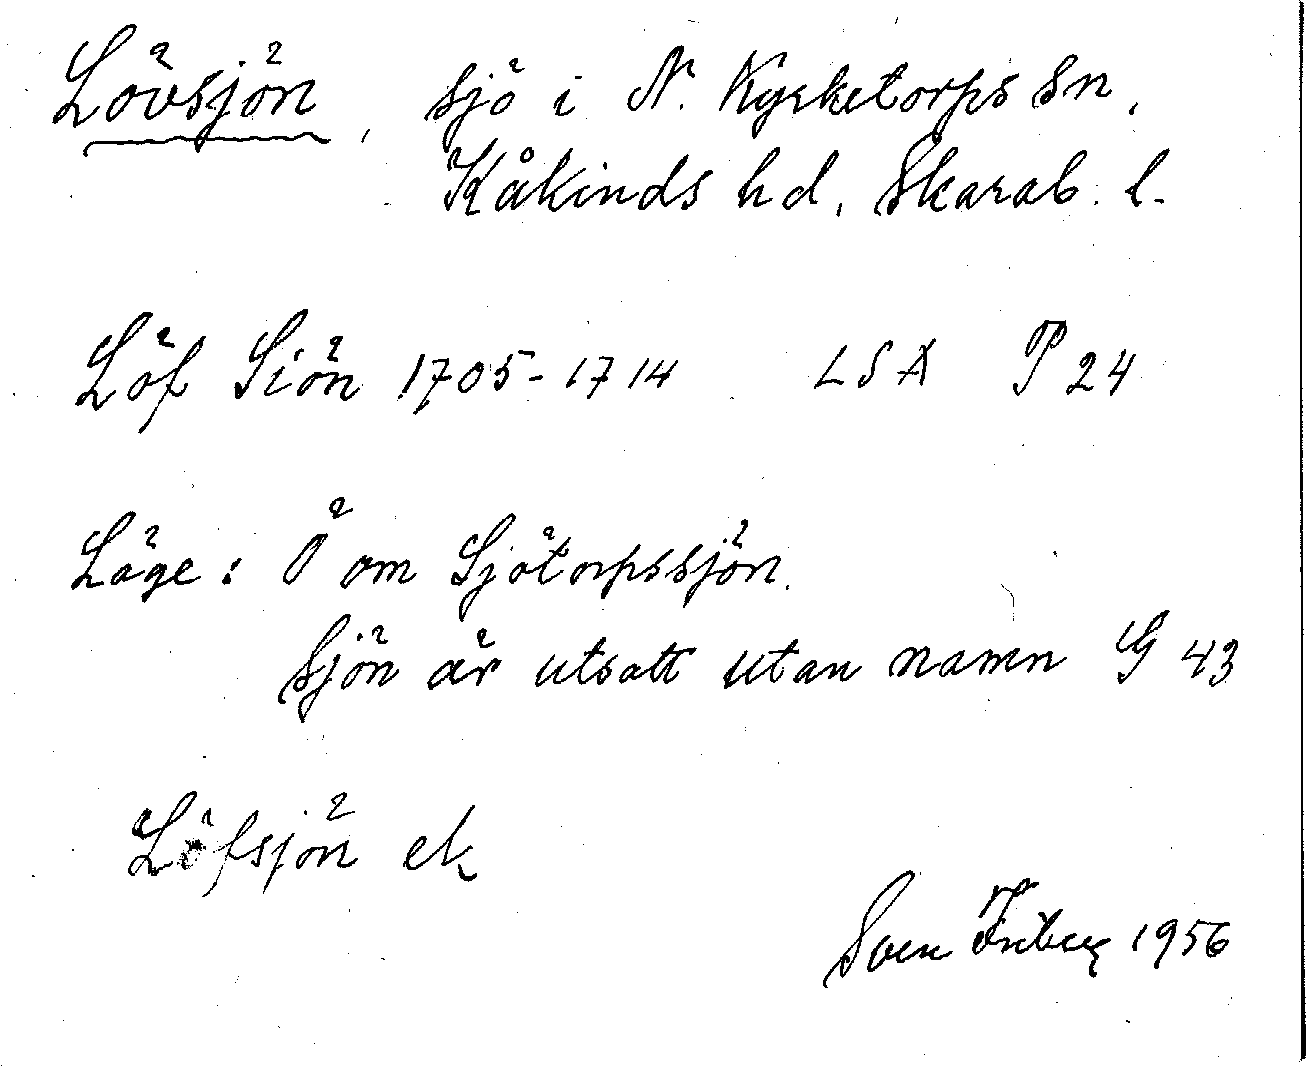 Lövsjön, sjö i N. Kyrketorps sn,
Kåkinds hd, Skarab. l.
Löf Siön 1705-1714 LSA P 24
Läge: Ö om Sjötorpssjön.
Sjön är utsatt utan namn G 43
Löfsjön ek
Sven Friberg 1956